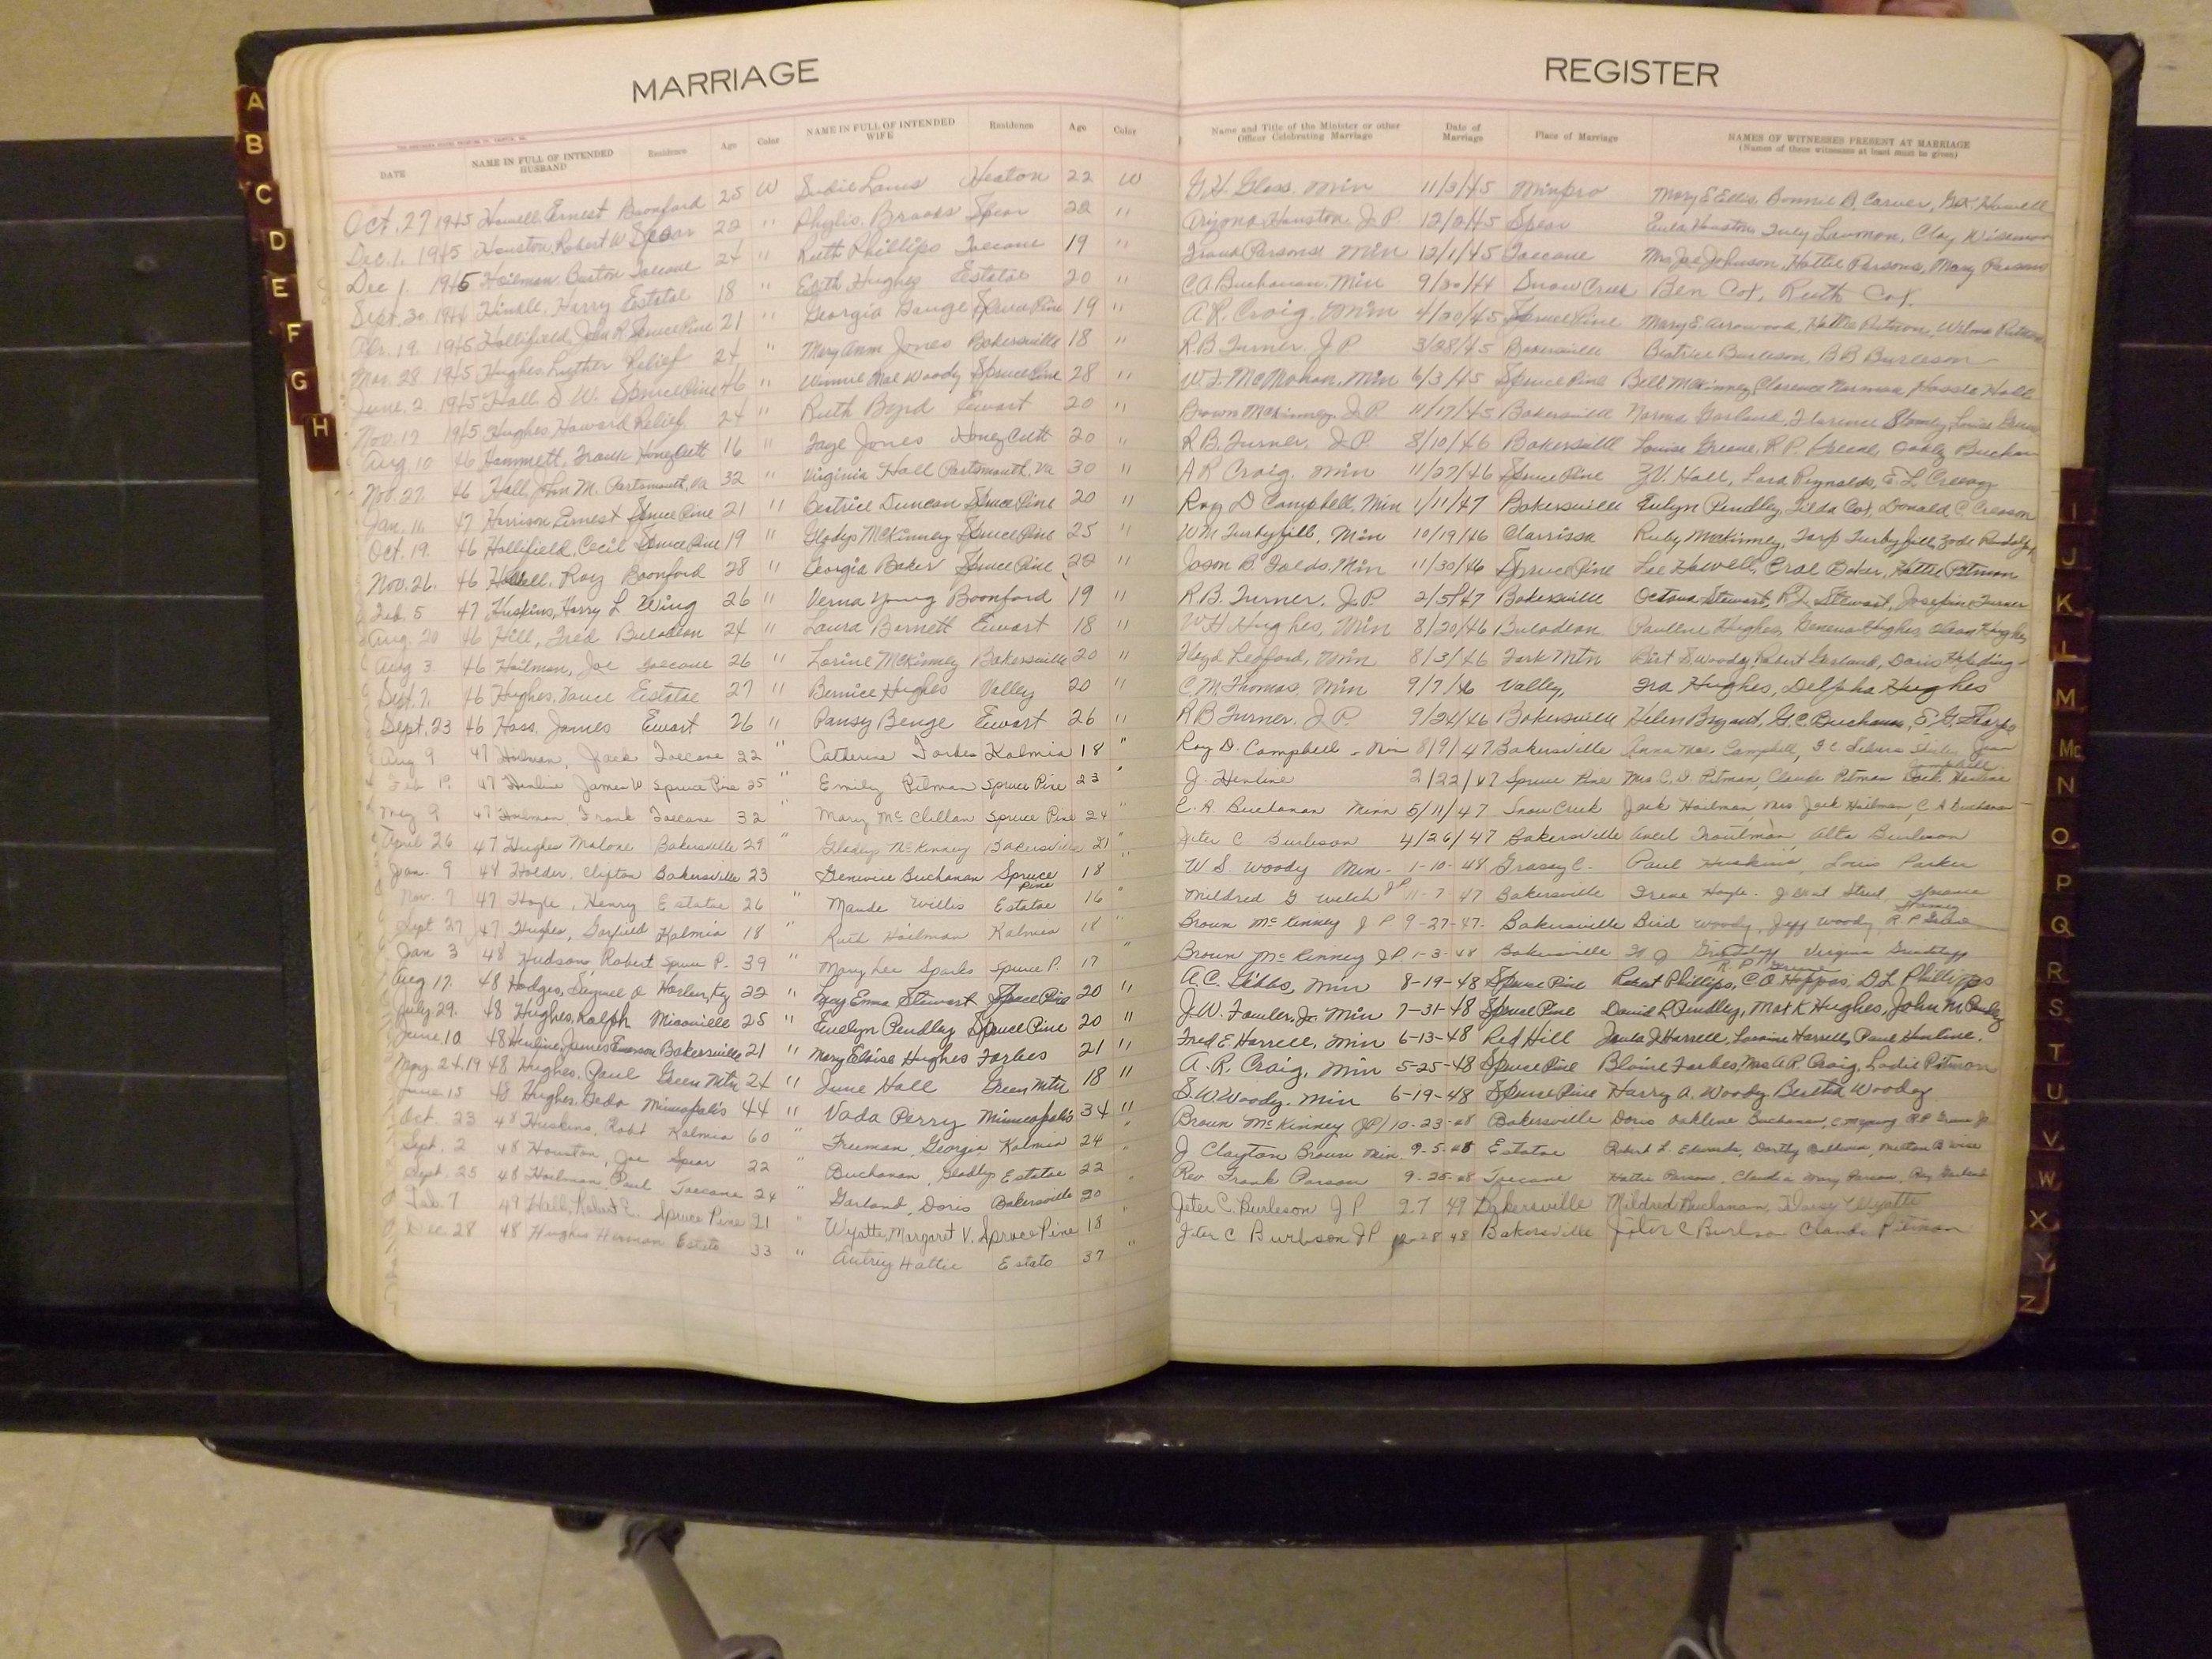 MARRIAGE REGISTER
DATE NAME IN FULL OF INTENDED HUSBAND Residence Age Color NAME IN FULL OF INTENDED WIFE Residence Age Color Name and Title of the Minister or other Officer Celebrating Marriage Date of Marriage Place of Marriage NAMES OF WITNESSES PRESENT AT MARRIAGE (Names of three witnesses at least must be given)
Oct. 27 1945 Howell, Ernest Boonford 25 W Sadie Laws Heaton 22 W G.H. Glass. Min 11/3/45 Minpro Mary E Ellis, Bonnie B. Carver, Howell
Dec. 1. 1945 Houston, Robert W Spear 22 " Phylis. Brooks Spear 22 " Arizona Houston, J.P. 12/2/45 Spear Eula Houston, July Lawmon, Clay Wiseman
Dec 1. 1945 Heilman Burton Toecane 24 " Ruth Phillips Toecane 19 " Frank Parsons. Min 12/1/45 Toecane Mrs Joe Johnson, Hattie Parsons, Mary Parsons
Sept. 30 1944 Hinkle, Harry Estatoe 18 " Edith Hughes Estatoe 20 " C.A. Buchanan. Min 9/30/44 Snow Creek Ben Cox, Ruth Cox.
Apr. 19. 1945 Hollifield, John R. Spruce Pine 21 " Georgia Gouge Spruce Pine 19 " A.R. Craig. Min 4/20/45 Spruce Pine Mary E. Arrowood, Hattie Pitman, Wilma Pitman
Mar. 28 1945 Hughes, Luther Relief 24 " Mary Ann Jones Bakersville 18 " R.B Turner. J P 3/28/45 Bakersville Beatrice Burleson, B B Burleson
June. 2 1945 Hall. S W. Spruce Pine 46 " Winnie Mae Woody Spruce Pine 28 " W.F. McMahan, Min 6/3/45 Spruce Pine Bell McKinney, Clarence Norman, Hassie Hall
Nov. 17 1945 Hughes, Howard Relief 24 " Ruth Byrd Ewart 20 " Brown McKinney. J.P. 11/17/45 Bakersville Norma Garland, Florence Stamey, Louise Greene
Aug. 10 46 Hammett, Frank Honeycutt 16 " Faye Jones Honeycutt 20 " R B. Turner, J.P. 8/10/46 Bakersville Louise Greene, R.P. Greene, Oakley Buchan
Nov. 27. 46 Hall, John M. Portsmouth, Va 32 " Virginia Hall Portsmouth, Va 30 " A R Craig. Min 11/27/46 Spruce Pine Z.V. Hall, Lora Reynolds,
Jan. 11. 47 Harrison Ernest Spruce Pine 21 " Beatrice Duncan Spruce Pine 20 " Roy D Campbell, Min 1/11/47 Bakersville Evelyn Pendley, Zelda Cox, Donald C. Creason
Oct. 19. 46 Hollifield, Cecil Spruce Pine 19 " Gladys McKinney Spruce Pine 25 " Wm Turbyfill, Min 10/19/46 Clarrissa Ruby McKinney, Turbyfill, Zade Randolph
Nov. 26. 46 Howell, Roy Boonford 28 " Georgia Baker Spruce Pine 22 " Jason B. Min 11/30/46 Spruce Pine Lee Howell, Baker, Hattie Pitman
Feb. 5 47 Huskins, Harry L Wing 26 " Verna Young Boonford 19 " R.B. Turner, J.P. 2/5/47 Bakersville Octava Stewart, Stewart, Josephine Turner
Aug. 20 46 Hill, Fred Buladean 24 " Laura Barnett Ewart 18 " W H Hughes, Min 8/20/46 Buladean. Pauline Hughes, Geneva Hughes, Hughes
Aug 3. 46 Hoilman, Joe Toecane 26 " Lorine McKinney Bakersville 20 " Floyd Ledford, Min 8/3/46 Fork Mtn Birt S. Woody, Robert Garland, Doris
Sept. 7. 46 Hughes, Vance Estatoe 27 " Bernice Hughes Valley 20 " C.M. Thomas, Min 9/7/46 Valley, Ira Hughes, Delpha Hughes
Sept. 23 46 Hass. James Ewart 26 " Pansy Benge Ewart 26 " R B Turner. J.P. 9/24/46 Bakersville Helen Bryant, G.C. Buchanan,
Aug 9 47 Hoilman, Jack Toecane 22 " Catherine Forbes Kalmia 18 " Roy D. Campbell - Min 8/9/47 Bakersville Anna Mae Campbell, Jean Campbell
Feb 19 47 Henline James W Spruce Pine 25 " Emily Pitman Spruce Pine 23 " J. Henline 2/22/47 Spruce Pine Mrs C.D. Pitman, Claude Pitman Henline
May 9 47 Hoilman, Frank Toecane 32 " Mary McClellan Spruce Pine 24 " C. A. Buchanan Minn 5/11/47 Snow Creek Jack Hoilman, Mrs Jack Hoilman, C A Buchanan
April 26 47 Hughes Malone Bakersville 29 " Gladys McKinney Bakersville 21 " Jeter C Burleson 4/26/47 Bakersville Troutman, Alta Burleson
Jan. 9 48 Holder, Clifton Bakersville 23 Genevive Buchanan Spruce Pine 18 " W S Woody Min. 1-10-48 Grassy C. Paul Huskins, Louis Parker
Nov. 7 47 Hoyle, Henry Estatoe 26 " Maude Willis Estatoe 16 " Mildred G Welch JP 11-7 47 Bakersville Irene Hoyle. Street, Florence Stamey
Sept 27 47 Hughes, Garfield Kalmia 18 " Ruth Hoilman Kalmia 18 " Brown McKinney J P 9-27-47- Bakersville Bird Woody, Jeff Woody, R.P. Greene
Jan 3 48 Hudson, Robert Spruce P. 39 " Mary Lee Sparks Spruce P. 17 " Brown McKinney J.P. 1-3-48 Bakersville Virginia R P Greene
Aug 17. 48 Hodges, Samuel D Harlan, Ky 22 " Emma Stewart Spruce Pine 20 " A.C. Gibbs, Min 8-19-48 Spruce Pine Robert Phillips, C O Hoppas, D L Phillips
July 29. 48 Hughes, Ralph Micaville 25 " Evelyn Pendley Spruce Pine 20 " J.W. Fowler, Jr. Min 7-31-48 Spruce Pine David R Pendley, Max K Hughes, John
June. 10 48 Henline, James Emerson Bakersville 21 " Mary Eloise Hughes Forbes 21 " Fred E Harrell, Min 6-13-48 Red Hill J Harrell, Loraine Harrell, Paul Henline.
May. 24. 19 48 Hughes, Paul Green Mtn 24 " June Hall Green Mtn 18 " A. R. Craig, Min 5-25-48 Spruce Pine Blaine Forbes, Mrs A R. Craig, Sadie Pitman
June. 15 48 Hughes. Gedo Minneapolis 44 " Vada Perry Minneapolis 34 " S.W. Woody. Min 6-19-48 Spruce Pine Harry A. Woody Bertha Woody
Oct. 23 48 Huskins, Robt Kalmia 60 " Freeman, Georgia Kalmia 24 " Brown McKinney JP 10-23-48 Bakersville Doris Oaklene Buchanan,
Sept. 2 48 Houston, Joe Spear 22 " Buchanan, Gladys Estatoe 22 J Clayton Brown Min. 9-5-48 Estatoe Robert L Edwards, Dorthy Baldwin, Milton B Wise
Sept. 25 48 Hoilman. Paul Toecane 24 " Garland, Doris Bakersville 20 " Rev Frank Parson 9-25-48 Toecane Hattie Parsons, Claudia Mary Parson, Roy Garland
Feb. 7 49 Hall, Robert E. Spruce Pine 21 " Wyatt, Margaret V. Spruce Pine 18 Jeter C. Burleson J P 2-7 49 Bakersville Mildred Buchanan, Wyatte
Dec. 28 48 Hughes Herman Estato 33 " Autrey Hattie Estato 37 " Jeter C Burleson JP 12-28 48 Bakersville Jeter C Burleson Claude Pitman
A
B
C
D
E
F
G
H
I
J
K
L
M
Mc
N
O
P
Q
R
S
T
U
V
W
X
Y
Z